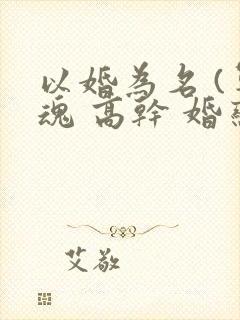 以婚為名(
魂 高幹 婚
艾敬